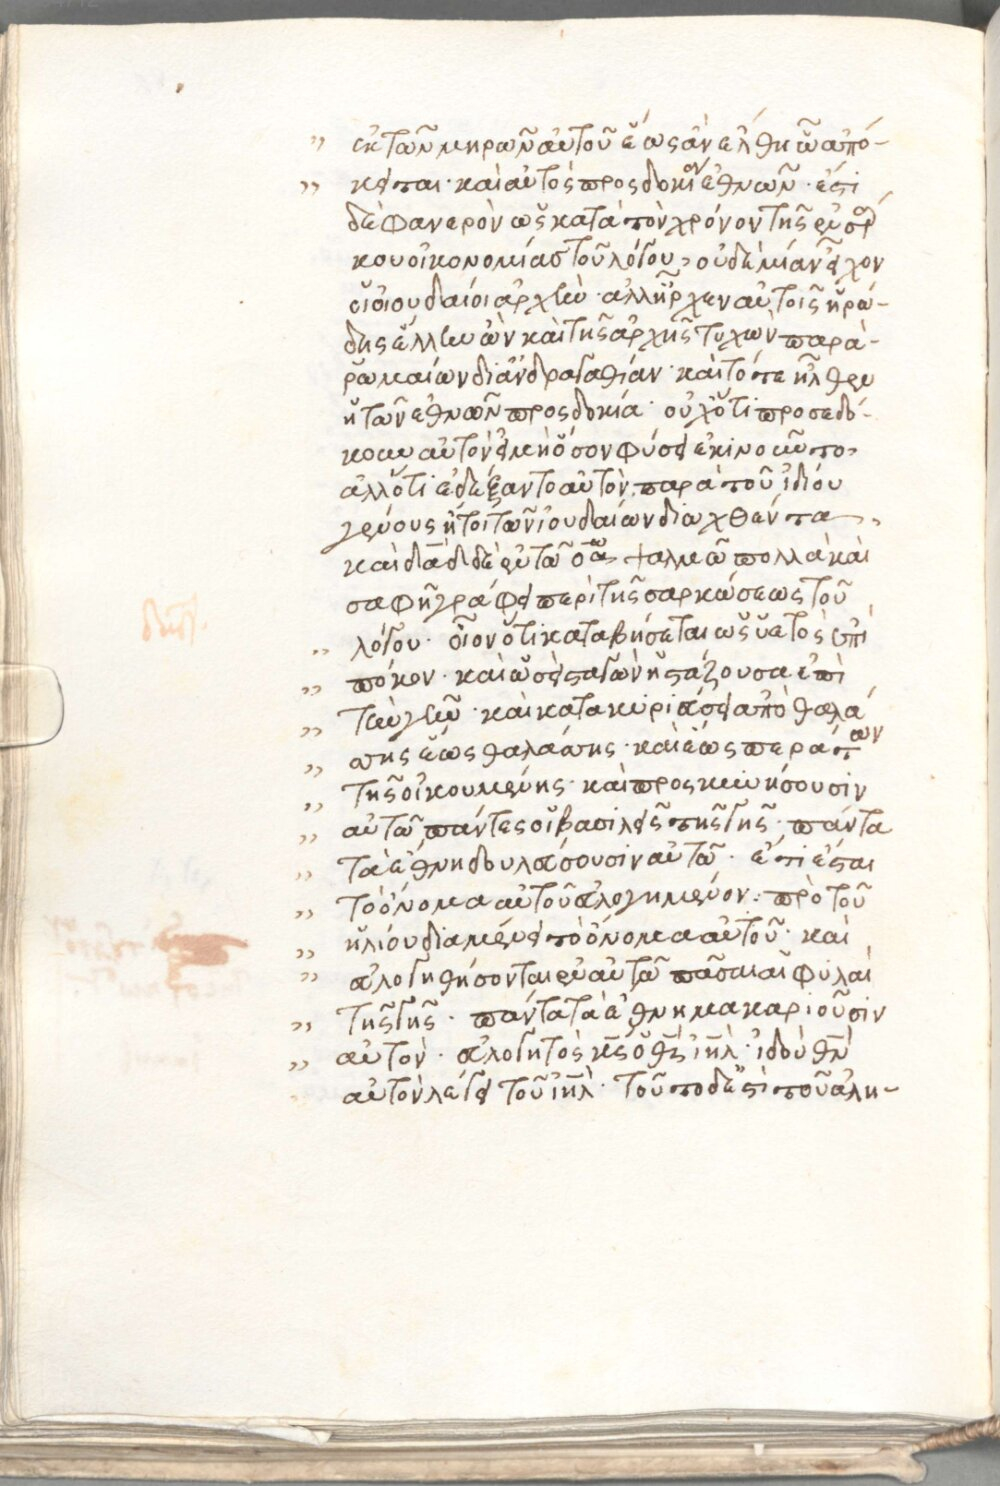 ἐκ τῶν μηρῶν αὐτοῦ ἕως ἂν ἔλθη ὧ ἀπό-
κειται· καὶ αὐτὸς προσδοκία ἐθνῶν· ἔστι
δὲ φανερὸν ὡς κατὰ τὸν χρόνον τῆς ἐνσάρ
κου οἰκονομίας τοῦ λόγου, οὐδεμίαν εἶχον
οἱ ἰουδαίοι ἀρχὴν· ἀλλ' ἦρχεν αὐτοῖς ἡρώ-
δης ἕλλην ὢν καὶ τῆς ἀρχῆς τυχὼν παρὰ
ρωμαίων δι' ἀνδραγαθίαν· καὶ τότε ἦλθεν
ἡ τῶν ἐθνῶν προσδοκία· οὐχ ὅτι προσεδό-
κουν αὐτὸν εἰ μὴ ὅσον φύσει ἐκινοῦντο,
ἀλλ' ὅτι ἐδέξαντο αὐτὸν, παρὰ τοῦ ἰδίου
γένους ἤτοι τῶν ἰουδαίων διωχθέντα,
καὶ δᾱδ δὲ ἐν τῶ οᾱω ψαλμῶ πολλὰ καὶ
σαφῆ γράφει περὶ τῆς σαρκώσεως τοῦ
λόγου· οἷον ὅτι καταβήσεται ὡς ὑετὸς ἐπὶ
πόκον· καὶ ὡσεὶ σταγὼν ἡ στάζουσα ἐπὶ
τὴν γῆν· καὶ κατακυριεύσει ἀπὸ θαλά
σσης ἕως θαλάσσης· καὶ ἕως περάτων
τῆς οἰκουμένης· καὶ προσκυνήσουσιν
αὐτῶ πάντες οἱ βασιλεῖς τῆς γῆς· πάντα
τὰ ἔθνη δουλεύσουσιν αὐτῶ· ἔτι ἔσται
τὸ ὄνομα αὐτοῦ εὐλογημένον· πρὸ τοῦ
ἡλίου διαμένει τὸ ὄνομα αὐτοῦ· καὶ
εὐλογηθήσονται ἐν αὐτῶ πᾶσαι αἱ φυλαὶ
τῆς γῆς· πάντα τὰ ἔθνη μακαριοῦσιν
αὐτὸν· εὐλογητὸς κ̄ς ὁ θ̄ς ἰη̄λ· ἰδοὺ θ̄ν
αὐτὸν λέγει τοῦ ἰη̄λ· τοῦτο δέ ἐστὶ τοῦ ἀλη-